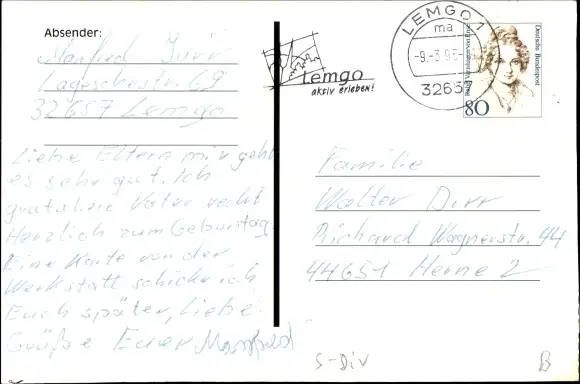 Absender:
Manfred Dürr
Lagesche str. 69
32657 Lemgo
Liebe Eltern mir geht
es sehr gut. Ich
gratuliere Vater recht
Herzlich zum Geburstag.
Eine Karte von der
Werkstatt schicke ich
Euch später, Liebe
Grüße Euer Manfred
Lemgo
aktiv erleben!
LEMGO 1
ma
-9.-3.95-
3265
Deutsche Bundespost
80
Familie
Walter Dürr
Richard Wagnerstr. 44
44651 Herne 2
S-Div
B